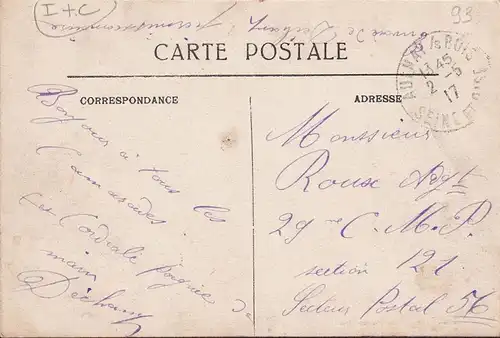 I + C
93
CARTE POSTALE
CORRESPONDANCE
ADRESSE
AULNAY S/S BOIS
13 45
2 - 5
17
SEINE ET OISE
Bonjour à tous les
Camarades
et Cordiale poignée de
main
Monsieur
Roux Sergt
29me C. M. P.
section 121
Secteur Postal 56